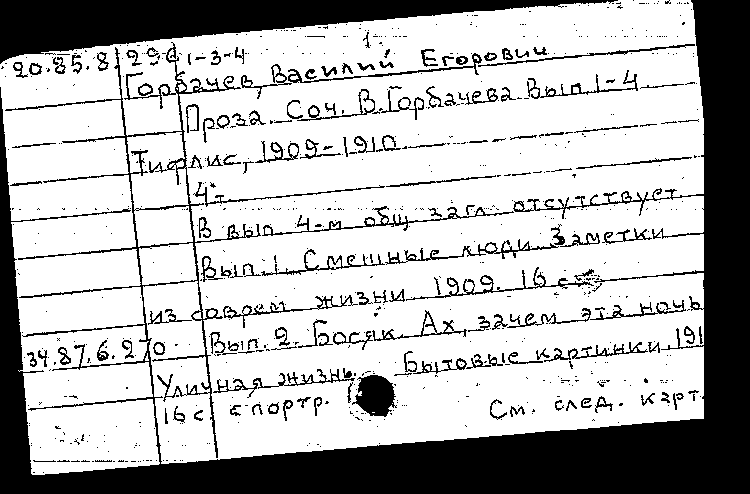 1.
20.85.8.290 1-3-4
Горбачев, Василий Егорович
Проза. Соч. В. Горбачева Вып. 1-4
Тифлис, 1909-1910.
4 т.
В вып. 4-м общ. загл. отсутствует.
Вып. 1. Смешные люди. Заметки
из соврем. жизни. 1909. 16 с.
34.87.6.270 Вып. 2. Босяк. Ах, зачем эта ночь
Уличная жизнь. Бытовые картинки. 191
16 с. с портр.
См. след. карт.